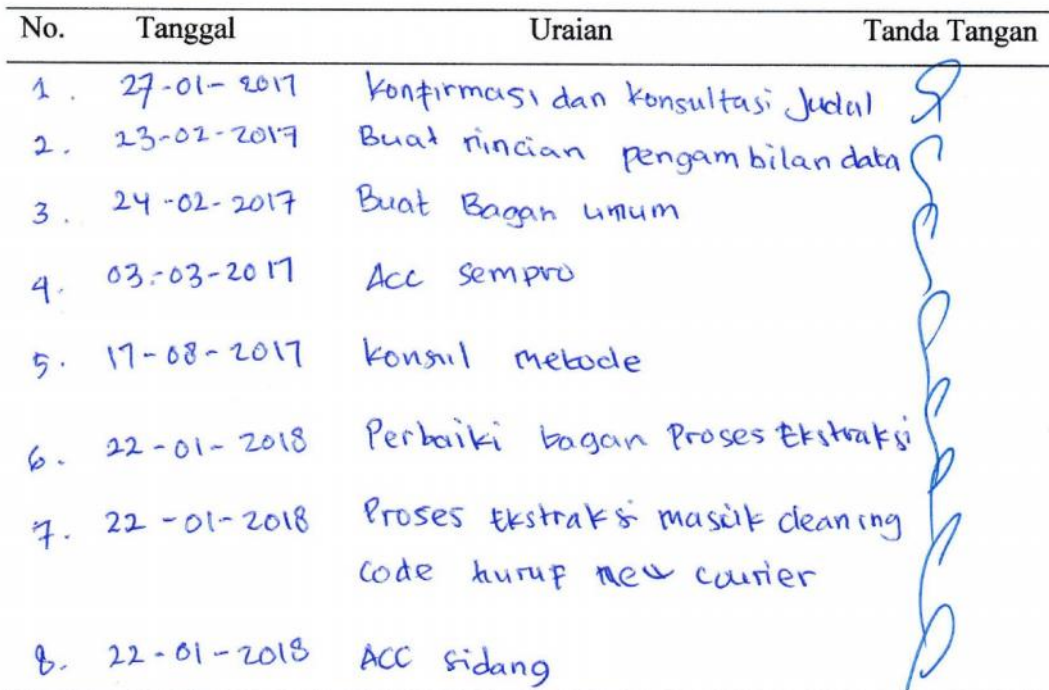 No. Tanggal Uraian Tanda Tangan
1. 27-01-2017 Konfirmasi dan Konsultasi Judul
2. 23-02-2017 Buat rincian pengambilan data
3. 24-02-2017 Buat Bagan umum
4. 03-03-2017 Acc sempro
5. 17-08-2017 Konsul metode
6. 22-01-2018 Perbaiki bagan Proses Ekstraksi
7. 22-01-2018 Proses Ekstraksi masuk cleaning
code huruf new courier
8. 22-01-2018 ACC sidang